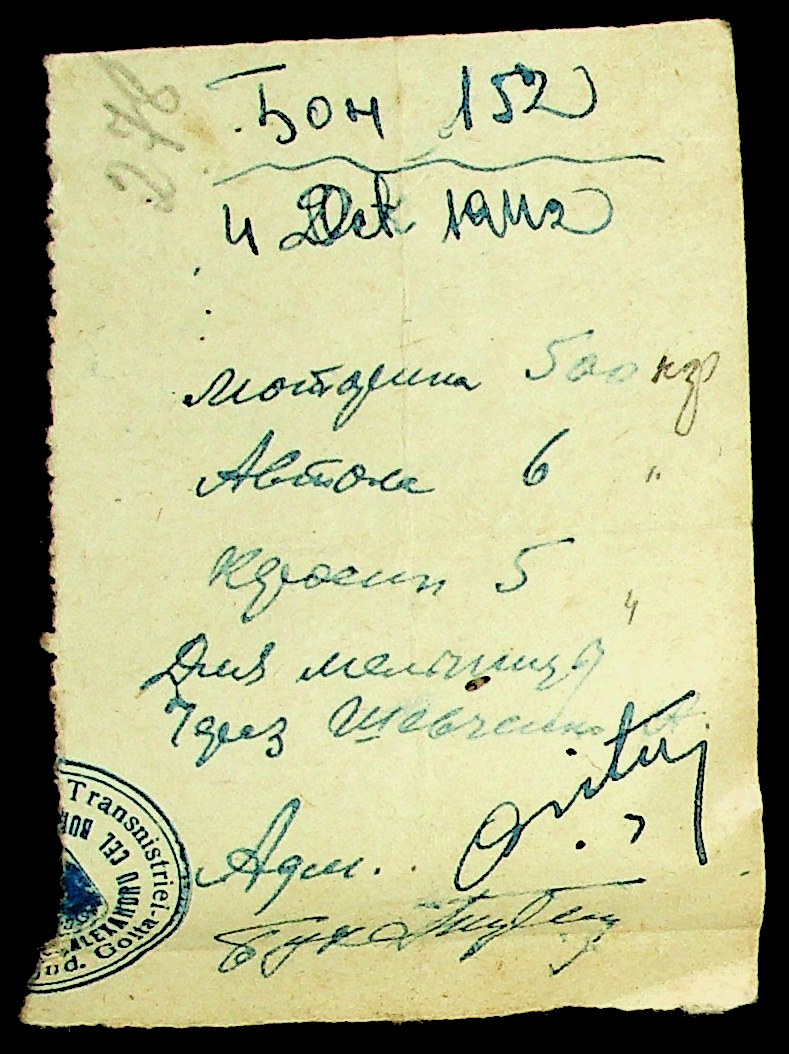 278
Бон 152
4 Дек 1942
моторина 500 кг
Автола 6 "
Керосин 5 "
Для мельницы
Через Шевченко А.
Адм.
Бух
Transnistriei-
Jud. Golta
ALEXANDRU CEL BUN